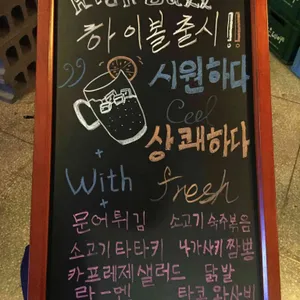 하이볼 출시!!
시원하다
Cool
상쾌하다
With fresh
문어튀김 소고기 숙주볶음
소고기타타키 나가사키 짬뽕
카프레제 샐러드 닭발
라-멘 타코 와사비